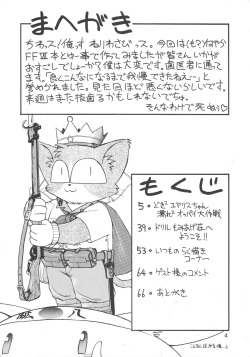 まへがき
ちわっス!俺っす ねりわさびっス。今回は(も?)何やら
FFⅦ本とゆー事で作ってみましたが皆さんいかが
おすごしでしょーか?僕は大変です。歯医者に通って
ます。「良くこんなになるまで我慢できたねえ…」と
誉められました。見た目ほど悪くないらしいです。
来週はまた抜歯るかもしれないでちゅ。
そんなわけで死ぬぅ
もくじ
5・どき エアリスちゃん
濡れて オッパイ大作戦
39・ドリル もみあげ荘へ
ようこそ!!
53・いつもの らく描き
コーナー
64・ゲスト様のコメント
66・あとがき
4